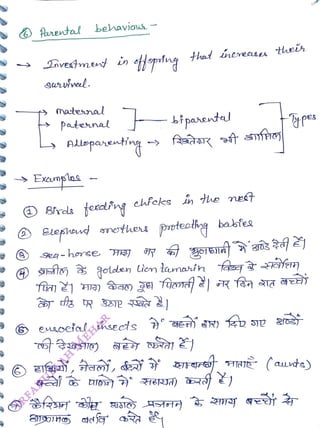 ⑥ Parental behaviour -
→ Investment in offspring that increases their
survival.
→ maternal
→ paternal
biparental
→ Alloparenting → रिश्तेदार भी शामिल
Types
→ Examples -
① Birds feeding chicks in the nest
② Elephant mothers protecting babies
③ sea-horse मादा नर की में अण्डे देती है।
④ ब्राजील के golden lion tamarin विश्व के सर्वोत्तम
पिता है। मादा केवल दूध पिलाती है। नर दिन रात बच्चों
को पीठ पर उठाए रखते है।
⑤ eusocial insects में बहनों द्वारा दिए गए अण्डों
की देखभाल बहने करती है।
⑥ हाथियों, नेवलों, बंदरों में सम्बन्धी मादाएँ (aunts)
बच्चों के पालने में सहायता करती है।
⑦ कैरियन प्रजनन के समय बच्चों से
आक्रामक बर्ताव करते है।